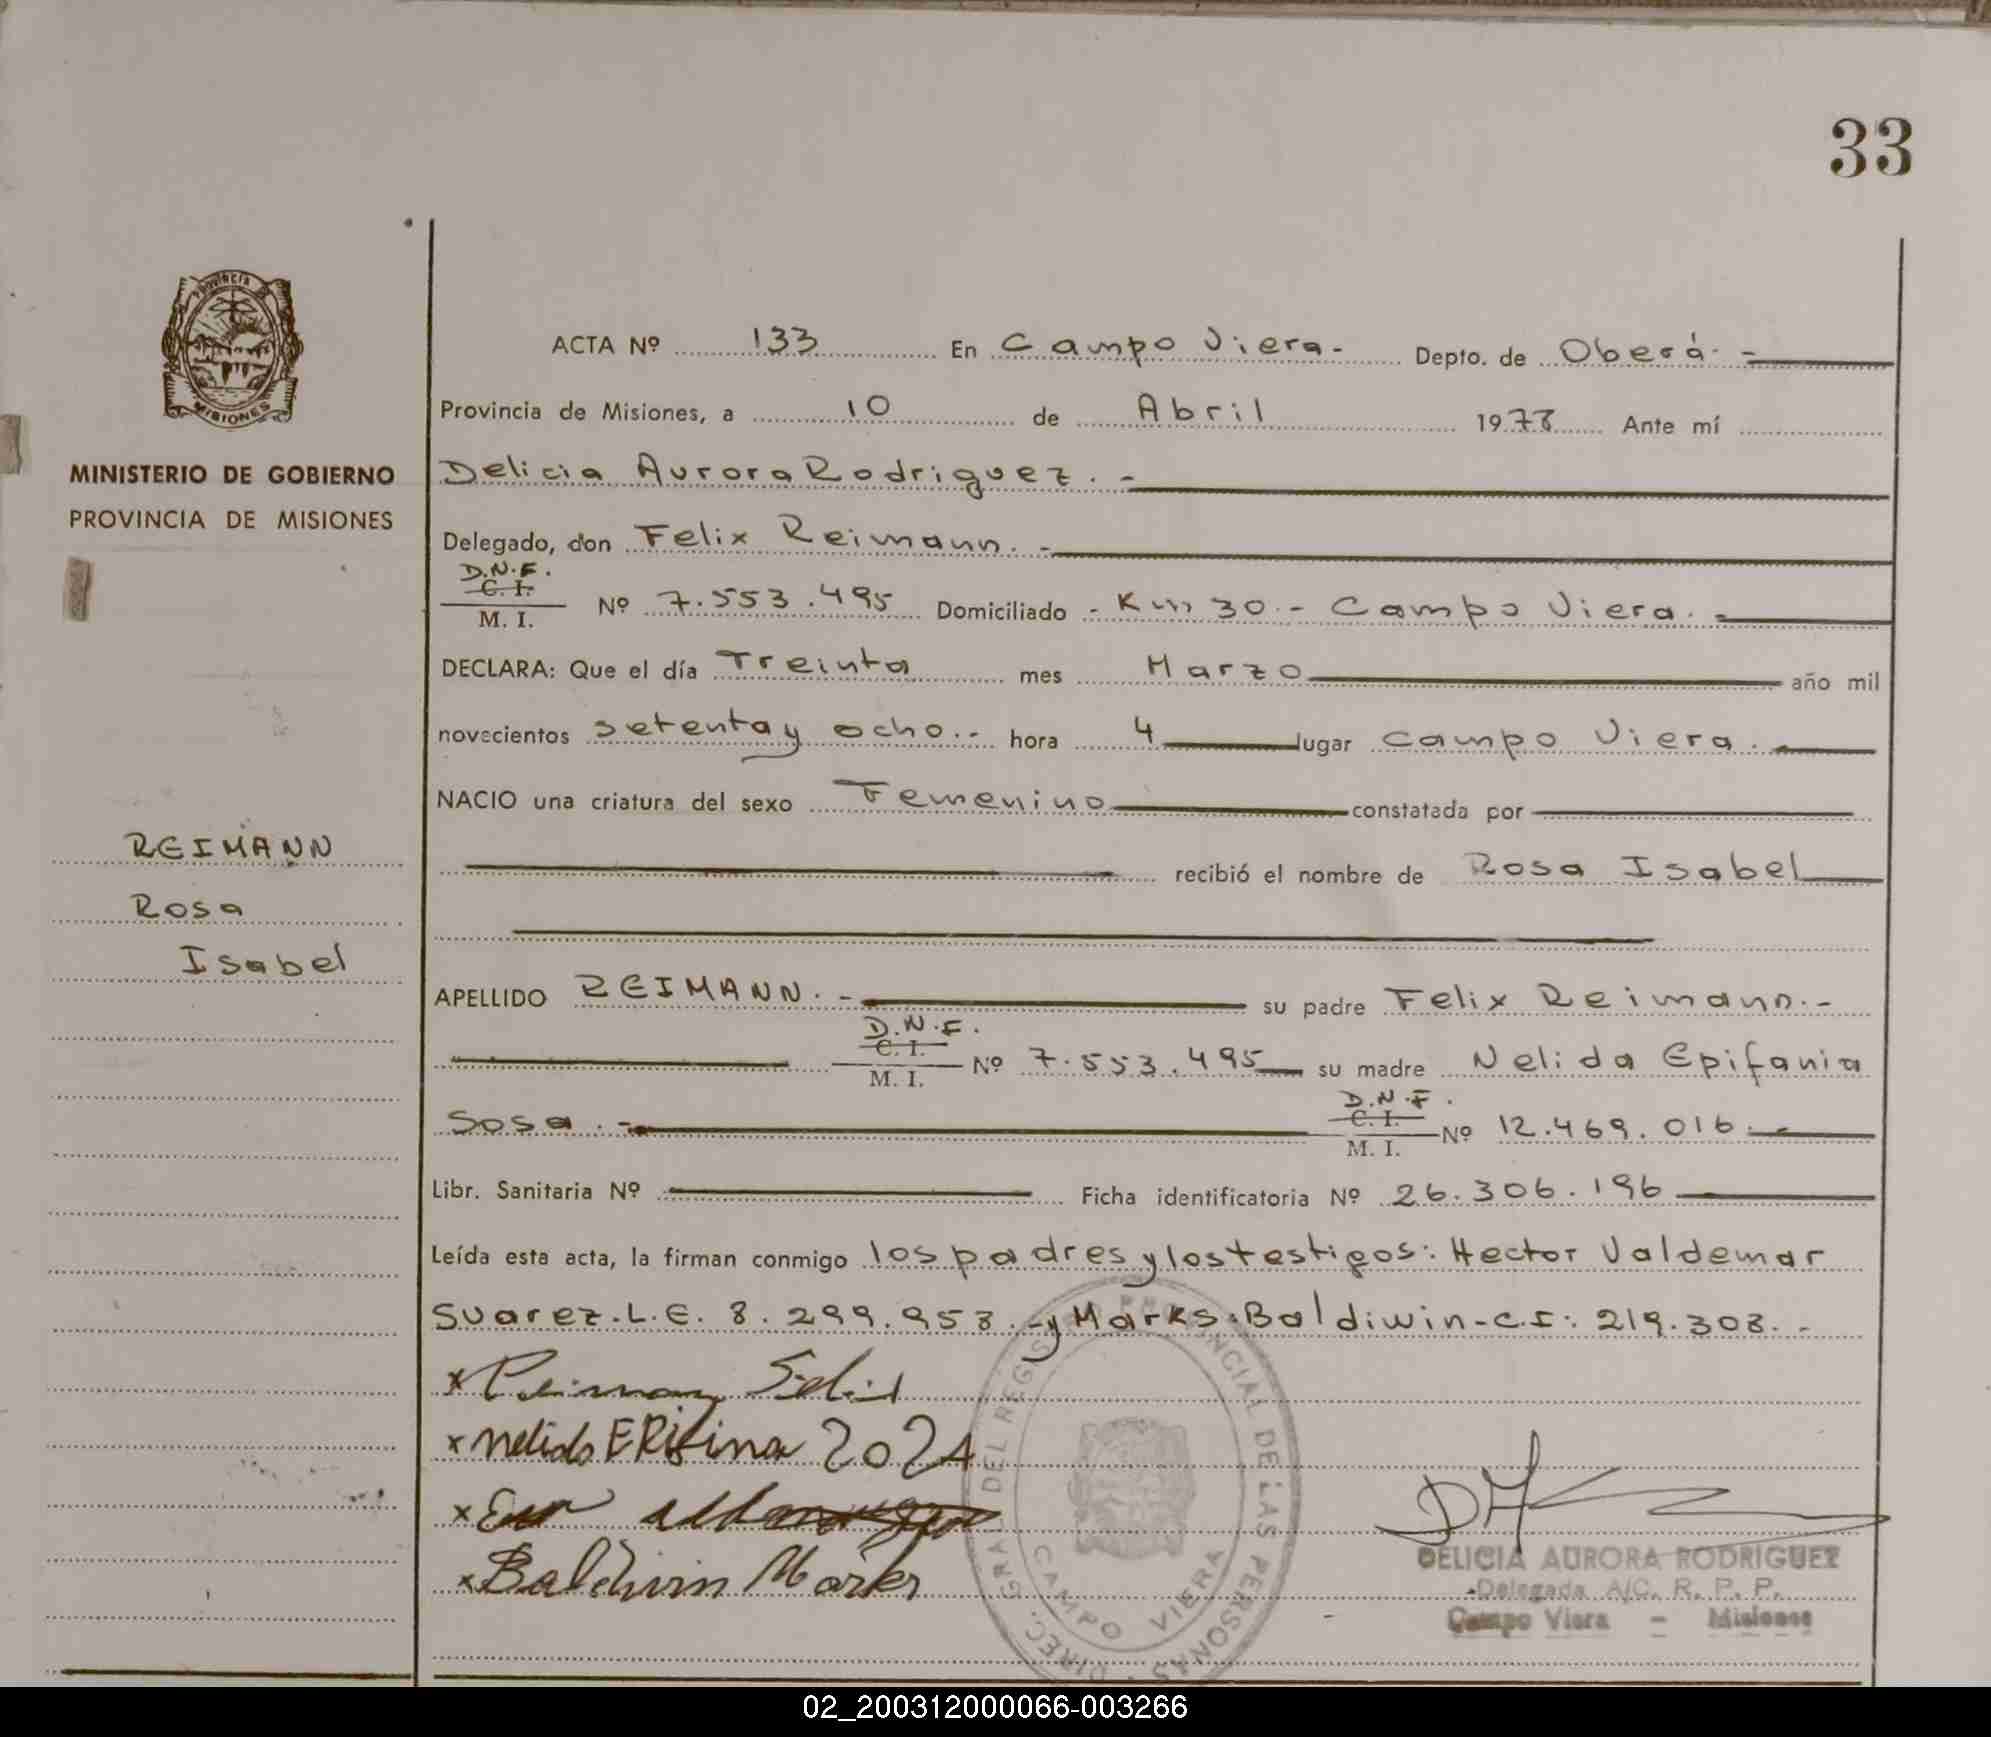 33
Provincia de
MISIONES
MINISTERIO DE GOBIERNO
PROVINCIA DE MISIONES
REIMANN
Rosa
Isabel
ACTA Nº 133 En Campo Viera.- Depto. de Oberá.-
Provincia de Misiones, a 10 de Abril 1978 Ante mí
Delicia Aurora Rodriguez.-
Delegado, don Felix Reimann.-
D.N.F.
C. I.
M. I. Nº 7.553.495 Domiciliado - Km 30.- Campo Viera.-
DECLARA: Que el día Treinta mes Marzo año mil
novecientos setenta y ocho.- hora 4 lugar Campo Viera.-
NACIO una criatura del sexo Femenino constatada por
recibió el nombre de Rosa Isabel
APELLIDO REIMANN.- su padre Felix Reimann.-
D.N.F.
C. I.
M. I. Nº 7.553.495 su madre Nelida Epifania
D.N.F.
C. I.
Sosa.- M. I. Nº 12.469.016.-
Libr. Sanitaria Nº Ficha identificatoria Nº 26.306.196
Leída esta acta, la firman conmigo los padres y los testigos: Hector Valdemar
Suarez.L.E. 8.299.958.-y Marks.Baldiwin-C.I: 219.308.-
x Reimann Felix
x nelida
x
x Baldiwin Marks
DIREC. GRAL. DEL REGISTRO PROVINCIAL DE LAS PERSONAS
CAMPO VIERA
DELICIA AURORA RODRIGUEZ
Delegada A/C. R. P. P.
Campo Viera - Misiones
02_200312000066-003266